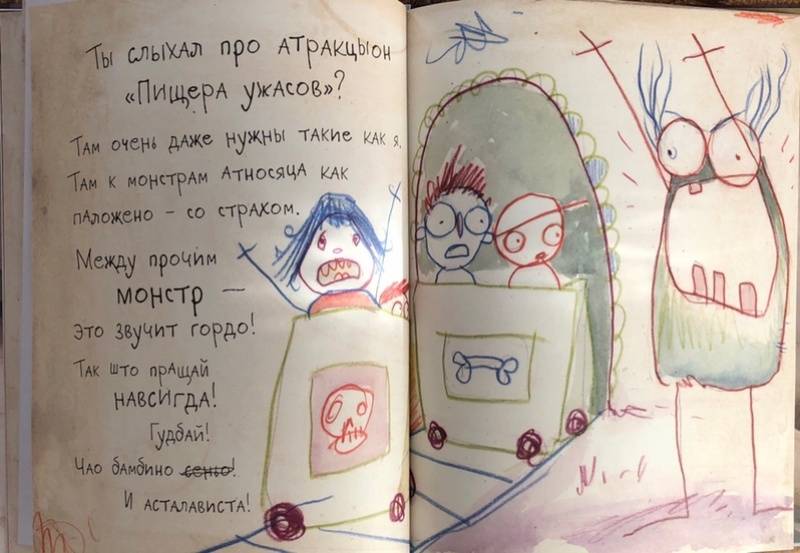 Ты слыхал про атракцыон
«Пищера ужасов»?
Там очень даже нужны такие как я.
Там к монстрам атносяца как
паложено – со страхом.
Между прочим
монстр –
это звучит гордо!
Так што пращай
навсигда!
Гудбай!
Чао бамбино сеньо!
И асталависта!